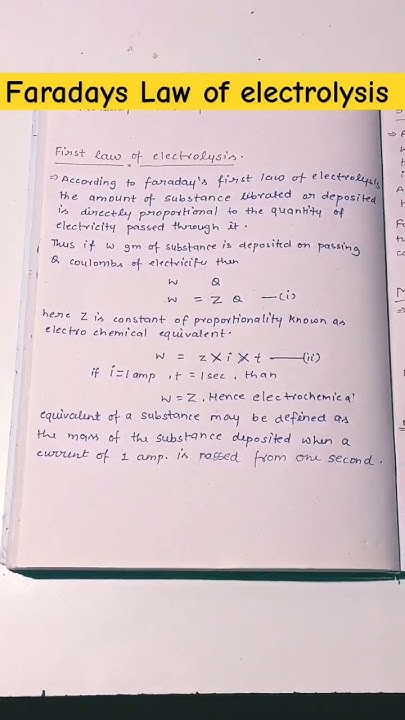 Faradays Law of electrolysis
First law of electrolysis.
⇒ According to faraday's first law of electrolysis
the amount of substance librated or deposited
is directly proportional to the quantity of
electricity passed through it.
Thus if w gm of substance is deposited on passing
Q coulombs of electricity then
W Q
W = Z Q —(i)
here Z is constant of proportionality known as
electro chemical equivalent.
W = Z X i X t —(ii)
if i=1amp, t = 1sec, than
W=Z. Hence electrochemical
equivalent of a substance may be defined as
the mass of the substance deposited when a
current of 1 amp. is passed from one second.